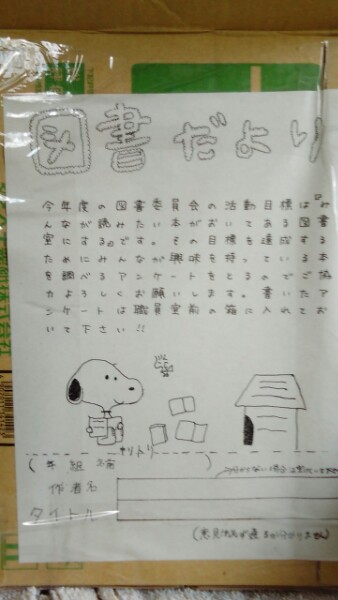 図書だより
今年度の図書委員会の活動目標は『み
んなが読みたい本がおいてある図書
室にする』です。その目標を達成する
ためにみんなが興味を持っている本
を調べるアンケートをとるのでご協
力よろしくお願いします。書いたア
ンケートは職員室前の箱に入れてお
いて下さい!!
キリトリ
(年 組 名前 )
作者名
タイトル